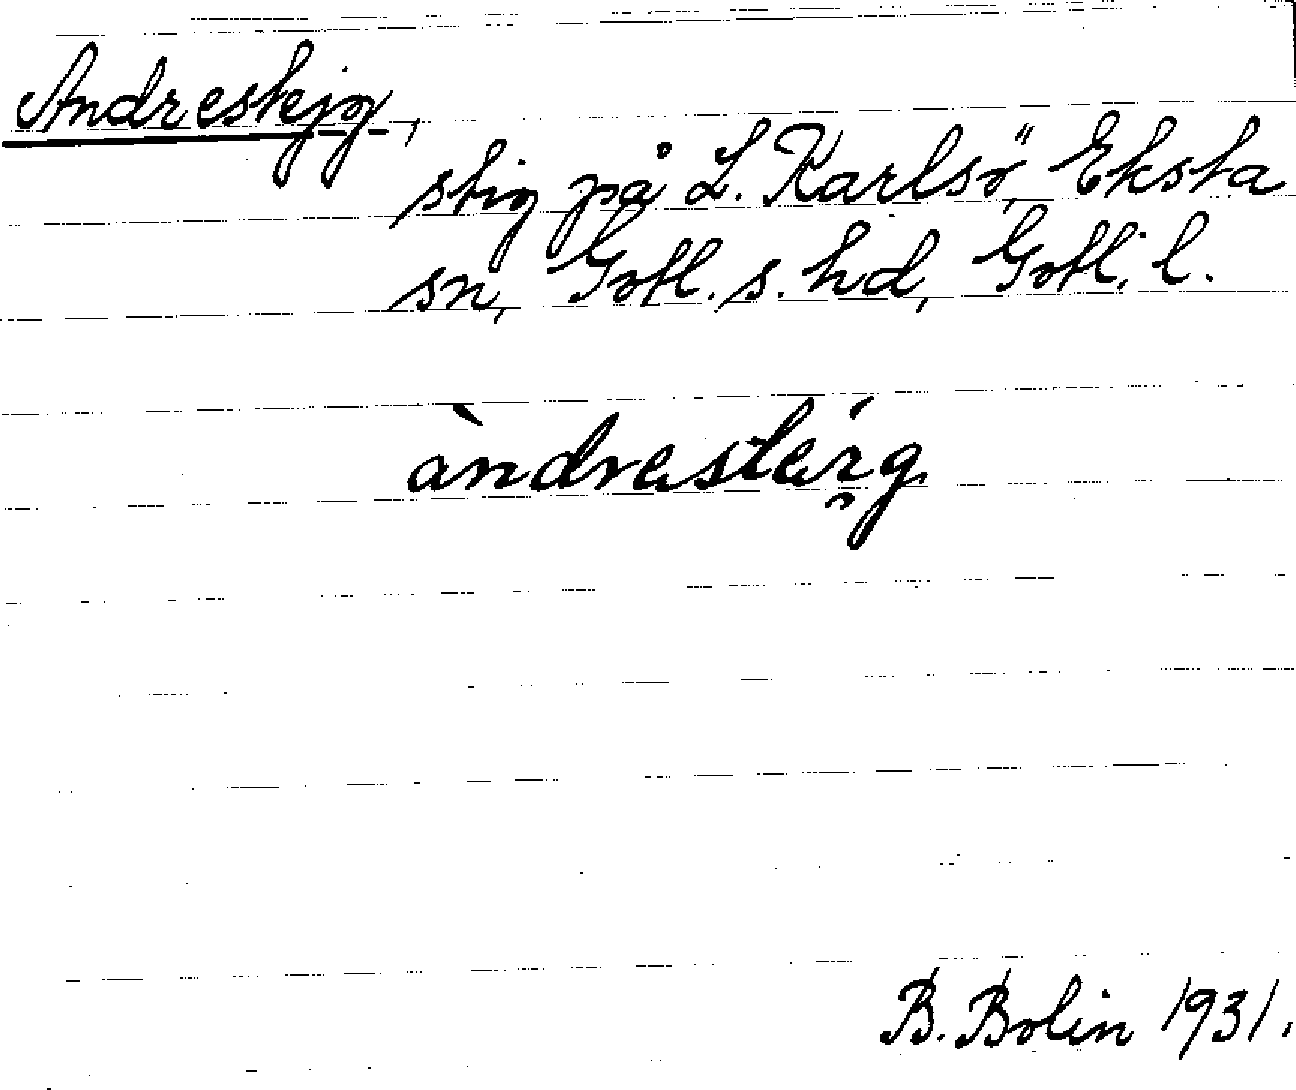 Andrestejg,
stig på L. Karlsö, Eksta
sn, Gotl. s. hd, Gotl. l.
B. Bolin 1931.